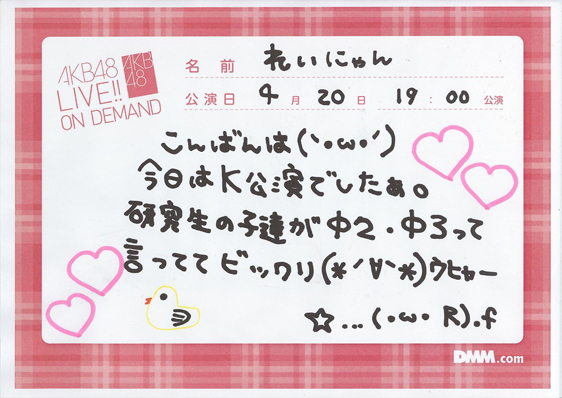 AKB48
LIVE!!
ON DEMAND
AKB
48
名前 れいにゃん
公演日 4月20日 19:00公演
こんばんは(`・ω・´)
今日はK公演でしたぁ。
研究生の子達が中2・中3って
言っててビックリ(*´∀`*)ウヒャー
☆...(・ω・R).f
DMM.com